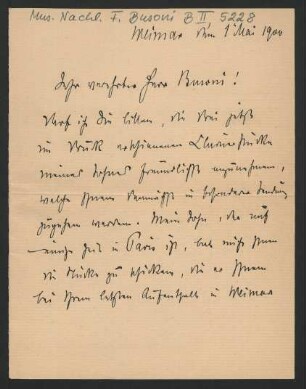 Mus. Nachl. F. Busoni B II, 5228
Weimar den 1 Mai 1900
Sehr verehrter Herr Busoni!
Darf ich Sie bitten, die drei jetzt
im Druck erschienenen Clavierstücke
meines Sohnes freundlichst anzunehmen,
welche Ihnen demnächst in besonderer Sendung
zugehen werden. Mein Sohn, der auf
einige Zeit in Paris ist, bat mich Ihnen
die Stücke zu schicken, die er Ihnen
bei Ihrem letzten Aufenthalt in Weimar